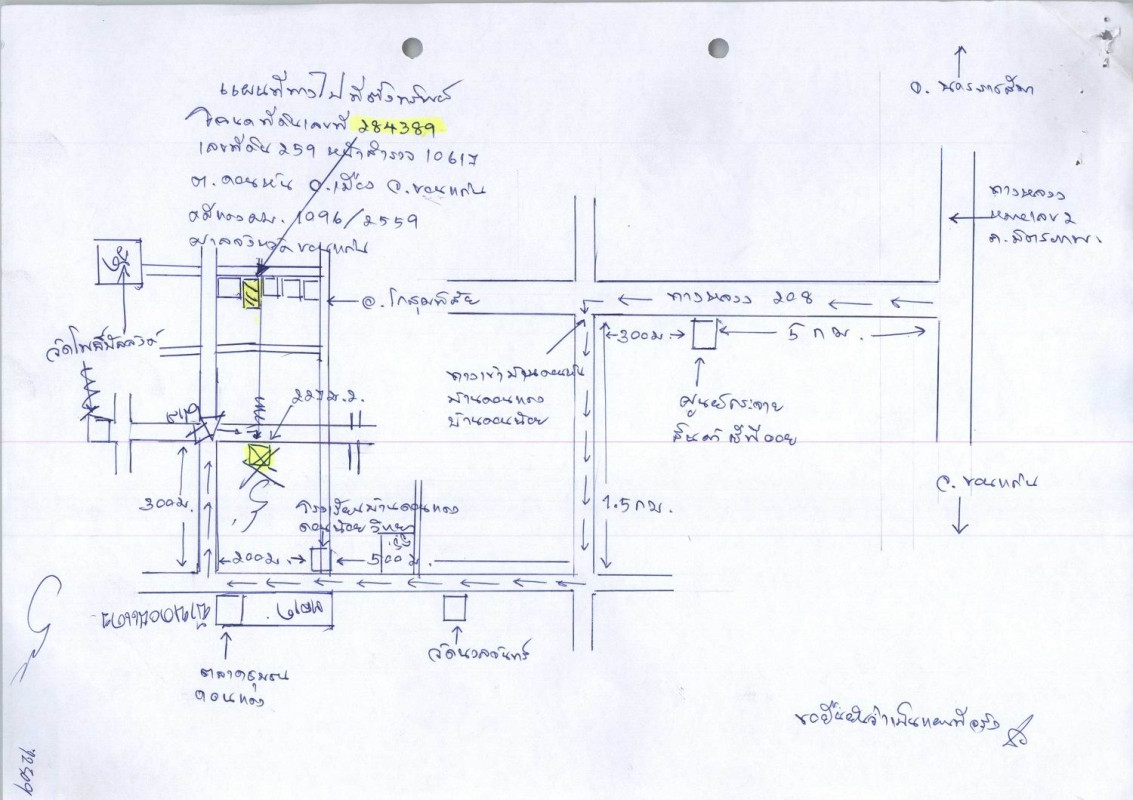 แผนที่ทางไปที่ตั้งทรัพย์
โฉนดที่ดินเลขที่ 284389
เลขที่ดิน 259 หน้าสำรวจ 10617
ต. ดอนหัน อ.เมือง จ.ขอนแก่น
คดีแดงผบ. 1096/2559
ศาลจังหวัดขอนแก่น
จ. นครราชสีมา
ทางหลวง
หมายเลข 2
ถ. มิตรภาพ
อ. โกสุมพิสัย
ทางหลวง 208
300ม.
5 กม.
วัดโพธิ์บัลลังก์
227 ต.ว.
ทางเข้าบ้านดอนหัน
บ้านดอนแดง
บ้านดอนน้อย
ศูนย์กระจาย
สินค้า ซีพีออย
จ. ขอนแก่น
300ม.
โรงเรียนบ้านดอนแดง
ดอนน้อยวิทยา
1.5 กม.
200ม.
500ม.
วัดนวลจันทร์
ตลาดชุมชน
ดอนแดง
ขอยืนยันว่าเป็นแผนที่จริง